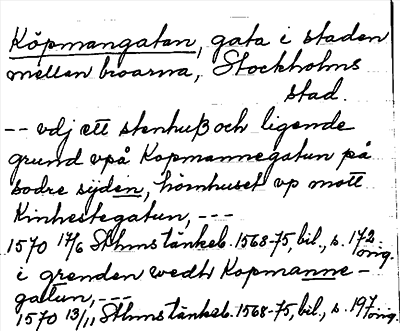 Köpmangatan, gata i staden
mellan broarna, Stockholms
stad.
-- vdj ett stenhuß och ligende
grund vpå Kopmannegatun på
sodre sijden, hörnhuset vp mott
Kinhestegatun, ---
1570 17/6 Sthms tänkeb. 1568-75, bil., s. 172 orig.
i grenden wedh Kopmanne-
gattun, ---
1570 13/11 Sthms tänkeb. 1568-75, bil., s. 197 orig.